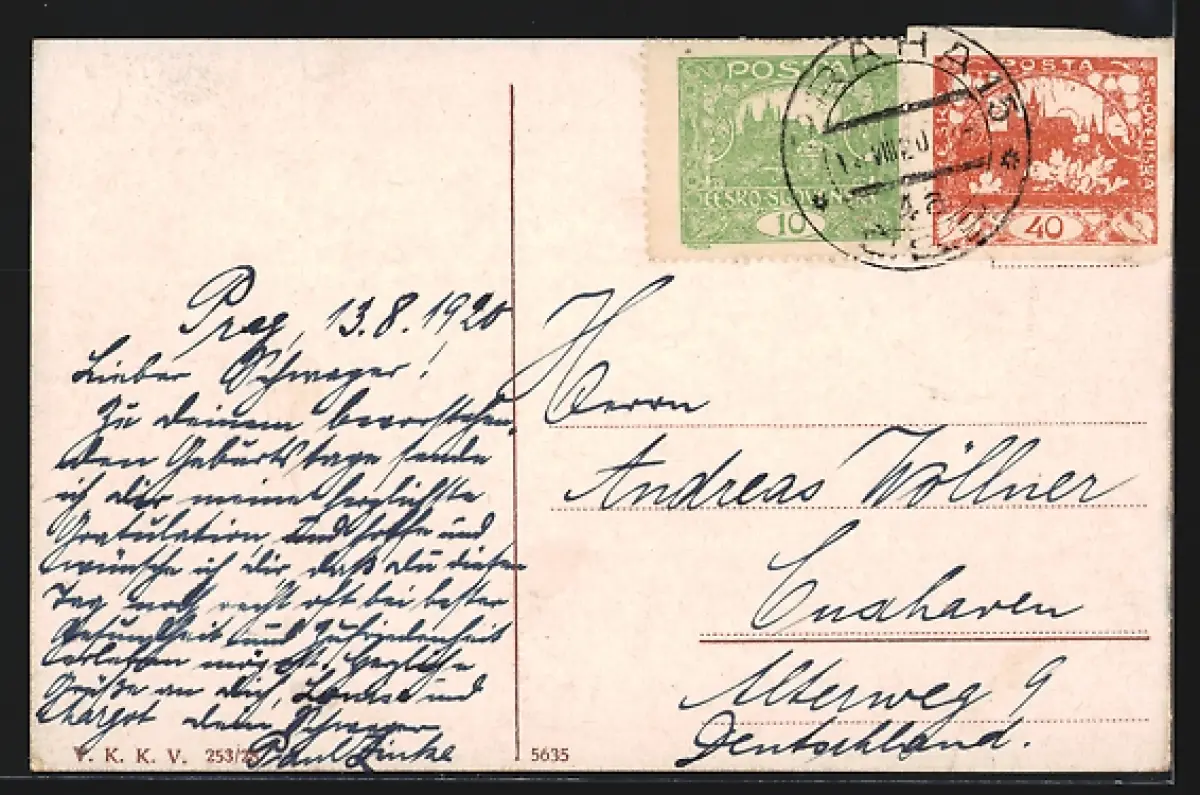 POSTA
ČESKO-SLOVENSKÁ
10
PRAHA 15
VIII 20
POSTA
ČESKO
SLOVENSKÁ
40
Prag, 13.8.1920
Lieber Schwager!
Zu deinem bevorstehen-
den Geburtstage sende
ich dir meine herzlichste
Gratulation und hoffe und
wünsche ich dir, daß du diesen
Tag noch recht oft bei bester
Gesundheit und Zufriedenheit
erleben mögest. Herzliche
Grüße an dich, und
Margot dein Schwager
Paul Linke
V. K. K. V. 253/2
5635
Herrn
Andreas Wöllner
Cuxhaven
Alterweg 9
Deutschland.